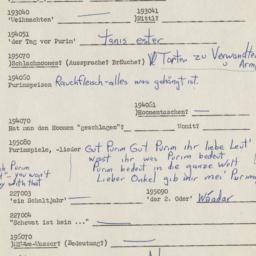 193040 193041
'Weihnachten' Wittl?
194051
'der Tag vor Purim' tanis ester
195070
Schlachmones? (Aussprache? Bräuche?) Torten zu Verwandten
194050
Purimspeisen Rauchfleisch - alles was gehängt ist.
194061
Hoomentaschen?
194070
Hat man den Hoomen "geschlagen"? Womit?
195080
Purimspiele, -lieder Gut Purim Gut Purim ihr liebe Leut'
wosst ihr was Purim bedeut
Purim bedeut in die ganze Welt
Lieber Onkel gib mir mei' Purim
Purim
- you won't
with that
227003 195090
'ein Schaltjahr' 'der 2. Oder' Woadar
227004
"Schewat ist kein ..."
195070
(Bedeutung?)